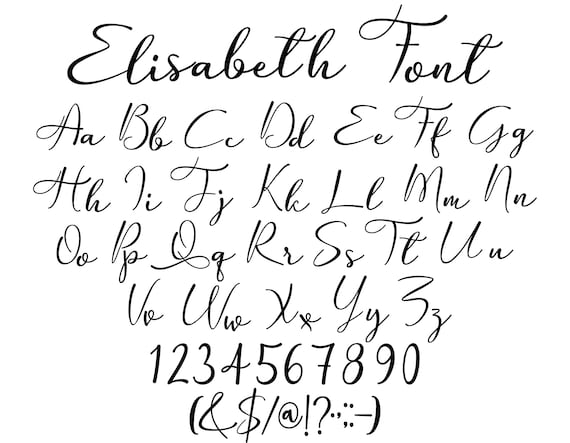 Elisabeth Font
Aa Bb Cc Dd Ee Ff Gg
Hh Ii Jj Kk Ll Mm Nn
Oo Pp Qq Rr Ss Tt Uu
Vv Ww Xx Yy Zz
1234567890
(&$/@!?.,;:-)